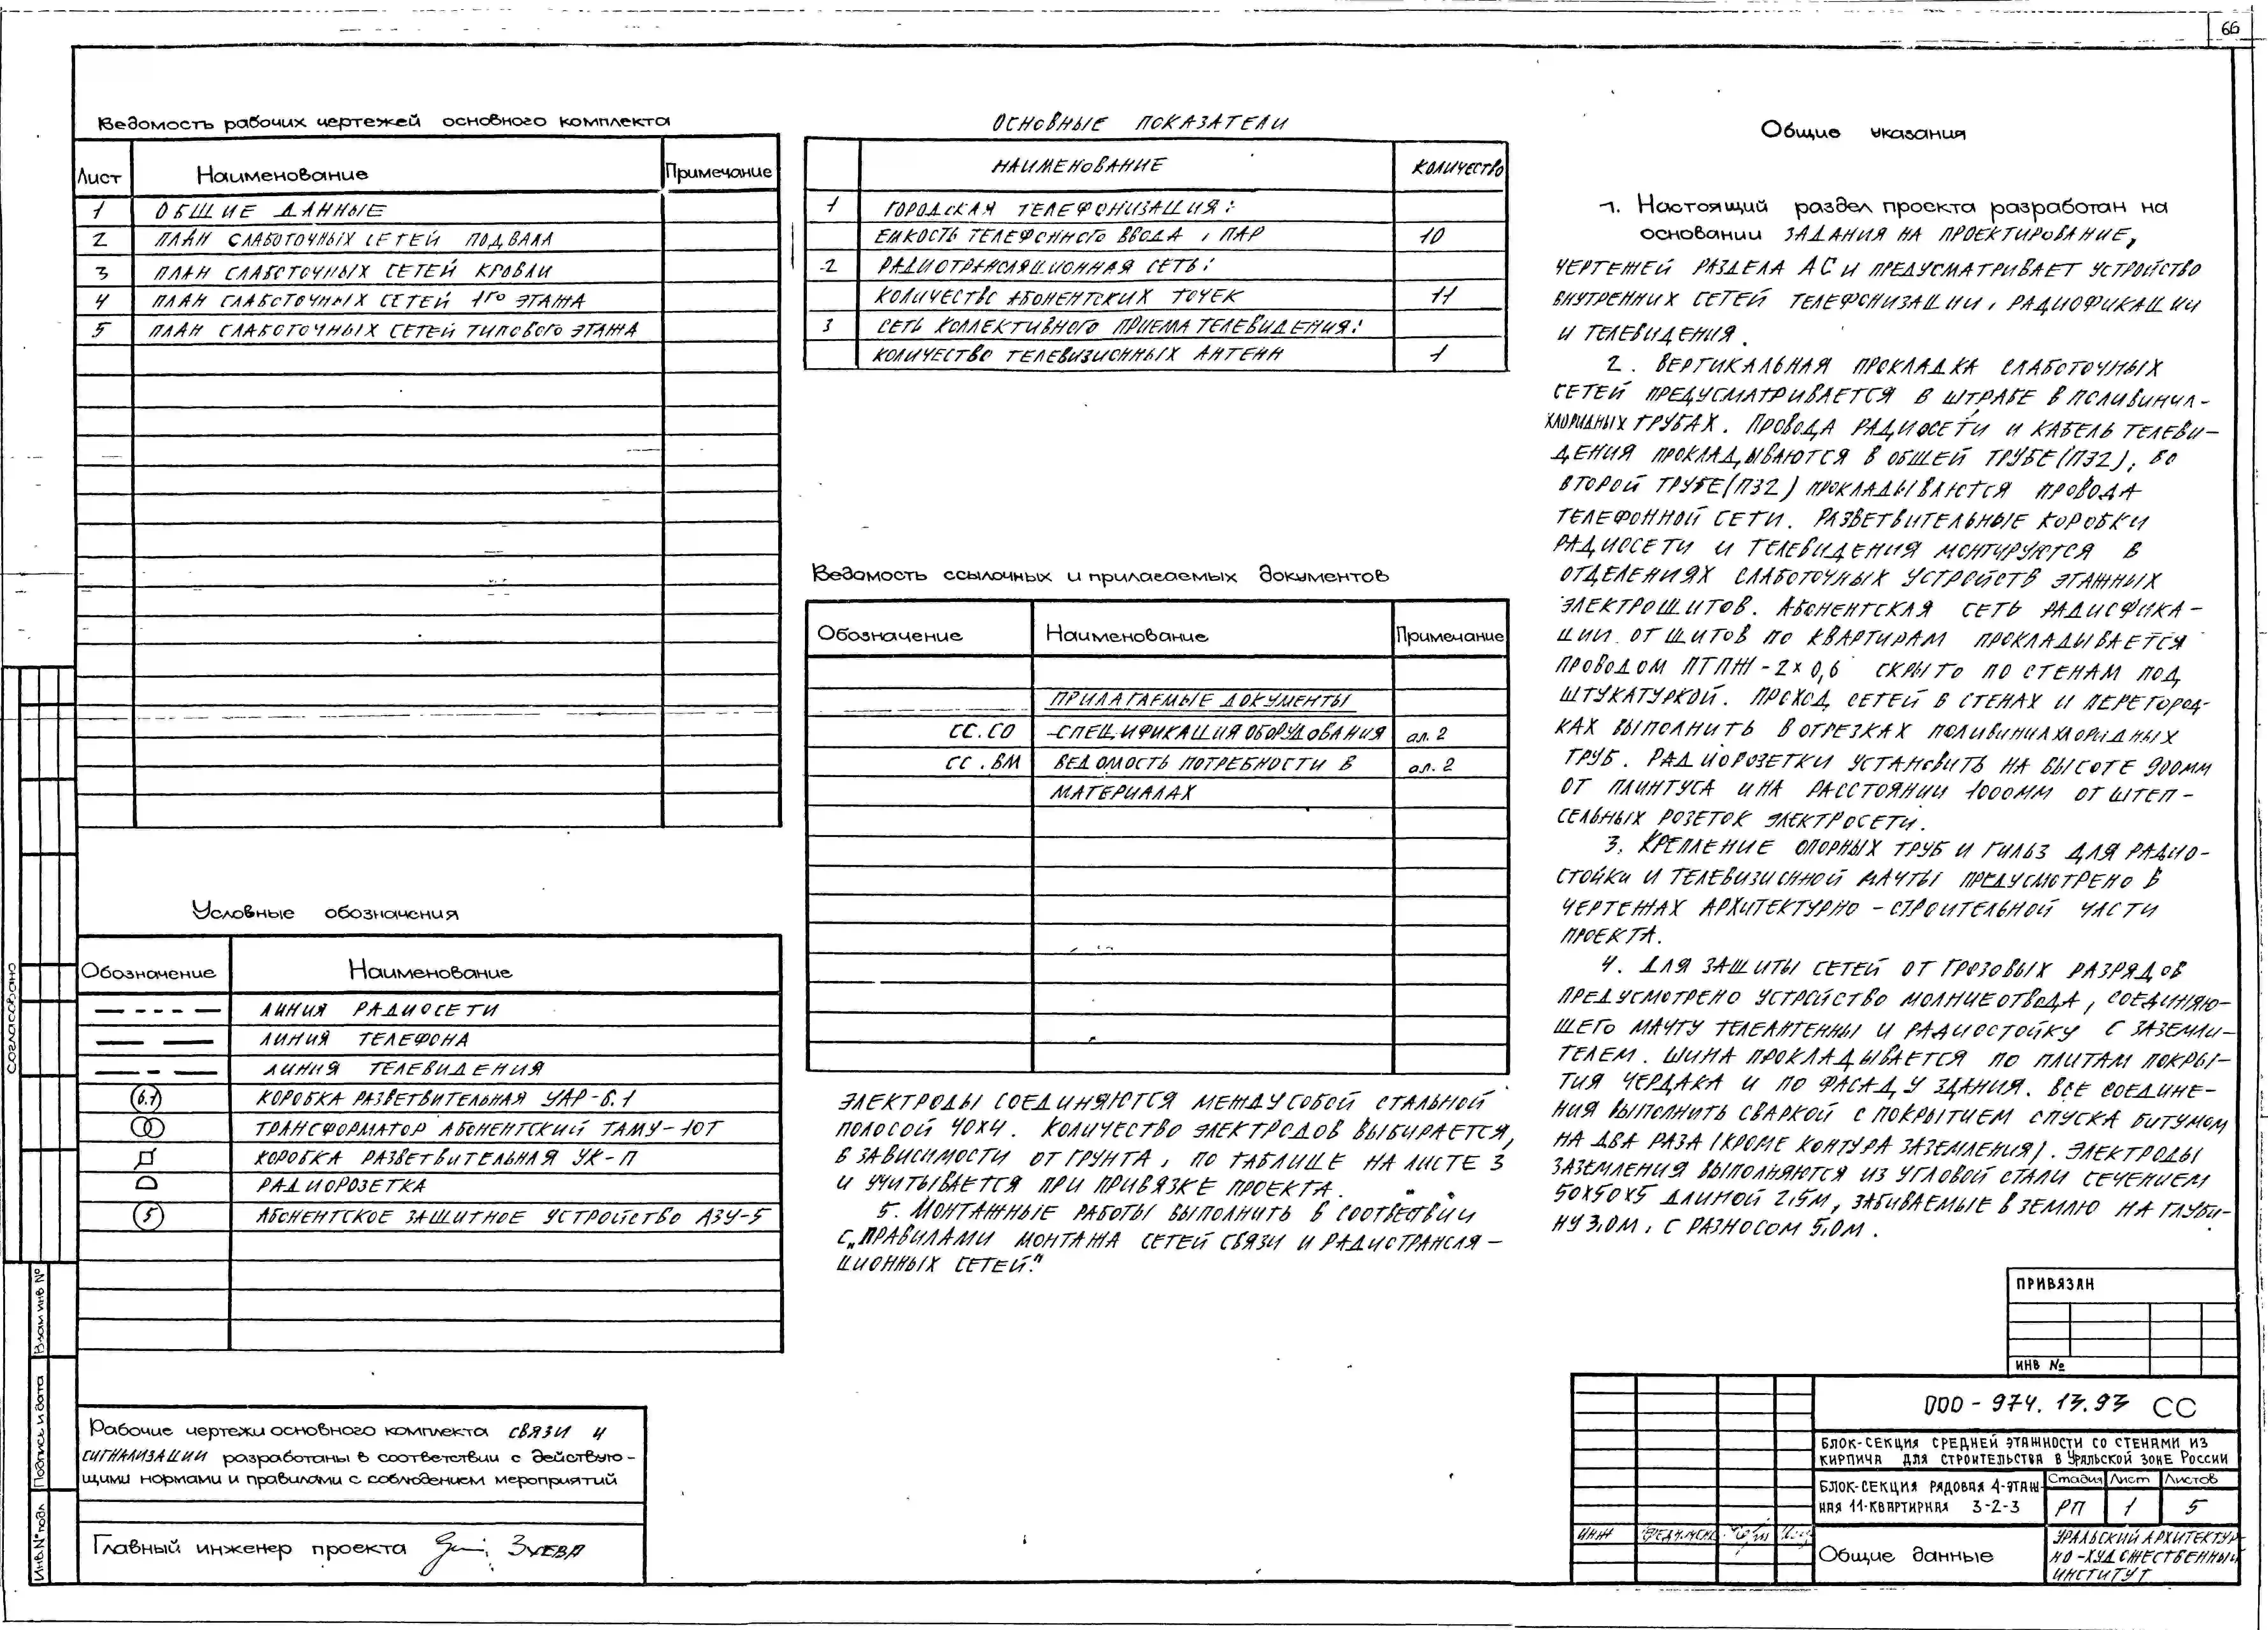 66
Ведомость рабочих чертежей основного комплекта
Лист Наименование Примечание
1 ОБЩИЕ ДАННЫЕ
2 ПЛАН СЛАБОТОЧНЫХ СЕТЕЙ ПОДВАЛА
3 ПЛАН СЛАБОТОЧНЫХ СЕТЕЙ КРОВЛИ
4 ПЛАН СЛАБОТОЧНЫХ СЕТЕЙ 1ГО ЭТАЖА
5 ПЛАН СЛАБОТОЧНЫХ СЕТЕЙ ТИПОВОГО ЭТАЖА
Условные обозначения
Обозначение Наименование
ЛИНИЯ РАДИОСЕТИ
ЛИНИЯ ТЕЛЕФОНА
ЛИНИЯ ТЕЛЕВИДЕНИЯ
6.1 КОРОБКА РАЗВЕТВИТЕЛЬНАЯ УАР-6.1
ТРАНСФОРМАТОР АБОНЕНТСКИЙ ТАМУ-10Т
КОРОБКА РАЗВЕТВИТЕЛЬНАЯ УК-П
РАДИОРОЗЕТКА
5 АБОНЕНТСКОЕ ЗАЩИТНОЕ УСТРОЙСТВО АЗУ-5
Рабочие чертежи основного комплекта СВЯЗИ И
СИГНАЛИЗАЦИИ разработаны в соответствии с действую-
щими нормами и правилами с соблюдением мероприятий
Главный инженер проекта ЗУЕВА
ОСНОВНЫЕ ПОКАЗАТЕЛИ
НАИМЕНОВАНИЕ КОЛИЧЕСТВО
1 ГОРОДСКАЯ ТЕЛЕФОНИЗАЦИЯ:
ЕМКОСТЬ ТЕЛЕФОННОГО ВВОДА, ПАР 10
2 РАДИОТРАНСЛЯЦИОННАЯ СЕТЬ:
КОЛИЧЕСТВО АБОНЕНТСКИХ ТОЧЕК 11
3 СЕТЬ КОЛЛЕКТИВНОГО ПРИЕМА ТЕЛЕВИДЕНИЯ:
КОЛИЧЕСТВО ТЕЛЕВИЗИОННЫХ АНТЕНН 1
Ведомость ссылочных и прилагаемых документов
Обозначение Наименование Примечание
ПРИЛАГАЕМЫЕ ДОКУМЕНТЫ
СС.СО СПЕЦИФИКАЦИЯ ОБОРУДОВАНИЯ ал. 2
СС.ВМ ВЕДОМОСТЬ ПОТРЕБНОСТИ В ал. 2
МАТЕРИАЛАХ
ЭЛЕКТРОДЫ СОЕДИНЯЮТСЯ МЕЖДУ СОБОЙ СТАЛЬНОЙ
ПОЛОСОЙ 40Х4. КОЛИЧЕСТВО ЭЛЕКТРОДОВ ВЫБИРАЕТСЯ,
В ЗАВИСИМОСТИ ОТ ГРУНТА, ПО ТАБЛИЦЕ НА ЛИСТЕ 3
И УЧИТЫВАЕТСЯ ПРИ ПРИВЯЗКЕ ПРОЕКТА.
5. МОНТАЖНЫЕ РАБОТЫ ВЫПОЛНИТЬ В СООТВЕТСВИИ
С „ПРАВИЛАМИ МОНТАЖА СЕТЕЙ СВЯЗИ И РАДИОТРАНСЛЯ-
ЦИОННЫХ СЕТЕЙ."
Общие указания
1. Настоящий раздел проекта разработан на
основании ЗАДАНИЯ НА ПРОЕКТИРОВАНИЕ,
ЧЕРТЕЖЕЙ РАЗДЕЛА АС И ПРЕДУСМАТРИВАЕТ УСТРОЙСТВО
ВНУТРЕННИХ СЕТЕЙ ТЕЛЕФОНИЗАЦИИ, РАДИОФИКАЦИИ
И ТЕЛЕВИДЕНИЯ.
2. ВЕРТИКАЛЬНАЯ ПРОКЛАДКА СЛАБОТОЧНЫХ
СЕТЕЙ ПРЕДУСМАТРИВАЕТСЯ В ШТРАБЕ В ПОЛИВИНИЛ-
ХЛОРИДНЫХ ТРУБАХ. ПРОВОДА РАДИОСЕТИ И КАБЕЛЬ ТЕЛЕВИ-
ДЕНИЯ ПРОКЛАДЫВАЮТСЯ В ОБЩЕЙ ТРУБЕ (П32), ВО
ВТОРОЙ ТРУБЕ (П32) ПРОКЛАДЫВАЮТСЯ ПРОВОДА
ТЕЛЕФОННОЙ СЕТИ. РАЗВЕТВИТЕЛЬНЫЕ КОРОБКИ
РАДИОСЕТИ И ТЕЛЕВИДЕНИЯ МОНТИРУЮТСЯ В
ОТДЕЛЕНИЯХ СЛАБОТОЧНЫХ УСТРОЙСТВ ЭТАЖНЫХ
ЭЛЕКТРОЩИТОВ. АБОНЕНТСКАЯ СЕТЬ РАДИОФИКА-
ЦИИ ОТ ЩИТОВ ПО КВАРТИРАМ ПРОКЛАДЫВАЕТСЯ
ПРОВОДОМ ПТПЖ-2×0,6 СКРЫТО ПО СТЕНАМ ПОД
ШТУКАТУРКОЙ. ПРОХОД СЕТЕЙ В СТЕНАХ И ПЕРЕГОРОД-
КАХ ВЫПОЛНИТЬ В ОТРЕЗКАХ ПОЛИВИНИЛХЛОРИДНЫХ
ТРУБ. РАДИОРОЗЕТКИ УСТАНОВИТЬ НА ВЫСОТЕ 900ММ
ОТ ПЛИНТУСА И НА РАССТОЯНИИ 1000ММ ОТ ШТЕП-
СЕЛЬНЫХ РОЗЕТОК ЭЛЕКТРОСЕТИ.
3. КРЕПЛЕНИЕ ОПОРНЫХ ТРУБ И ГИЛЬЗ ДЛЯ РАДИО-
СТОЙКИ И ТЕЛЕВИЗИОННОЙ МАЧТЫ ПРЕДУСМОТРЕНО В
ЧЕРТЕЖАХ АРХИТЕКТУРНО-СТРОИТЕЛЬНОЙ ЧАСТИ
ПРОЕКТА.
4. ДЛЯ ЗАЩИТЫ СЕТЕЙ ОТ ГРОЗОВЫХ РАЗРЯДОВ
ПРЕДУСМОТРЕНО УСТРОЙСТВО МОЛНИЕОТВОДА, СОЕДИНЯЮ-
ЩЕГО МАЧТУ ТЕЛЕАНТЕННЫ И РАДИОСТОЙКУ С ЗАЗЕМЛИ-
ТЕЛЕМ. ШИНА ПРОКЛАДЫВАЕТСЯ ПО ПЛИТАМ ПОКРЫ-
ТИЯ ЧЕРДАКА И ПО ФАСАДУ ЗДАНИЯ. ВСЕ СОЕДИНЕ-
НИЯ ВЫПОЛНИТЬ СВАРКОЙ С ПОКРЫТИЕМ СПУСКА БИТУМОМ
НА ДВА РАЗА (КРОМЕ КОНТУРА ЗАЗЕМЛЕНИЯ). ЭЛЕКТРОДЫ
ЗАЗЕМЛЕНИЯ ВЫПОЛНЯЮТСЯ ИЗ УГЛОВОЙ СТАЛИ СЕЧЕНИЕМ
50Х50Х5 ДЛИНОЙ 2,5М, ЗАБИВАЕМЫЕ В ЗЕМЛЮ НА ГЛУБИ-
НУ 3,0М, С РАЗНОСОМ 5,0М.
ПРИВЯЗАН
ИНВ №
000-974.13.93 СС
БЛОК-СЕКЦИЯ СРЕДНЕЙ ЭТАЖНОСТИ СО СТЕНАМИ ИЗ
КИРПИЧА ДЛЯ СТРОИТЕЛЬСТВА В УРАЛЬСКОЙ ЗОНЕ РОССИИ
БЛОК-СЕКЦИЯ РЯДОВАЯ 4-ЭТАЖ-
НАЯ 11-КВАРТИРНАЯ 3-2-3
Стадия Лист Листов
РП 1 5
ИНЖ
Общие данные
УРАЛЬСКИЙ АРХИТЕКТУР
НО-ХУДОЖЕСТВЕННЫЙ
ИНСТИТУТ
Согласовано
Взам инв №
Подпись и дата
Инв.№ подл